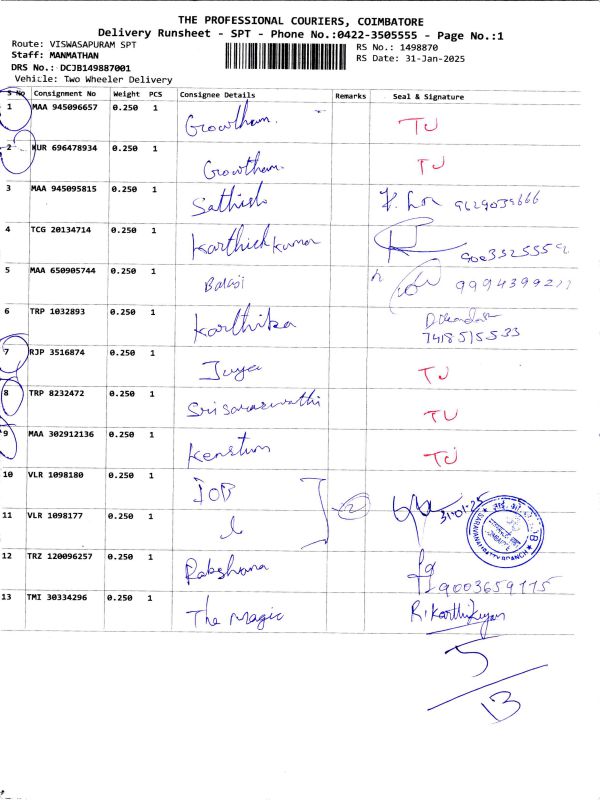 THE PROFESSIONAL COURIERS, COIMBATORE
Delivery Runsheet - SPT - Phone No.:0422-3505555 - Page No.:1
Route: VISWASAPURAM SPT
RS No.: 1498870
Staff: MANMATHAN
RS Date: 31-Jan-2025
DRS No.: DCJB149887001
Vehicle: Two Wheeler Delivery
S No Consignment No Weight PCS Consignee Details Remarks Seal & Signature
1 MAA 945096657 0.250 1 Growtham. TU
2 KUR 696478934 0.250 1 Growtham. TU
3 MAA 945095815 0.250 1 Sathish 9629039666
4 TCG 20134714 0.250 1 Karthick Kumar
5 MAA 650905744 0.250 1 Balaji
6 TRP 1032893 0.250 1 Karthika 7418515533
7 RJP 3516874 0.250 1 Jaya TU
8 TRP 8232472 0.250 1 Sri saraswathi TU
9 MAA 302912136 0.250 1 TU
10 VLR 1098180 0.250 1 IOB 2 31-01-25
11 VLR 1098177 0.250 1
12 TRZ 120096257 0.250 1 9003659115
13 TMI 30334296 0.250 1 The magic R. Karthikeyan
5
13